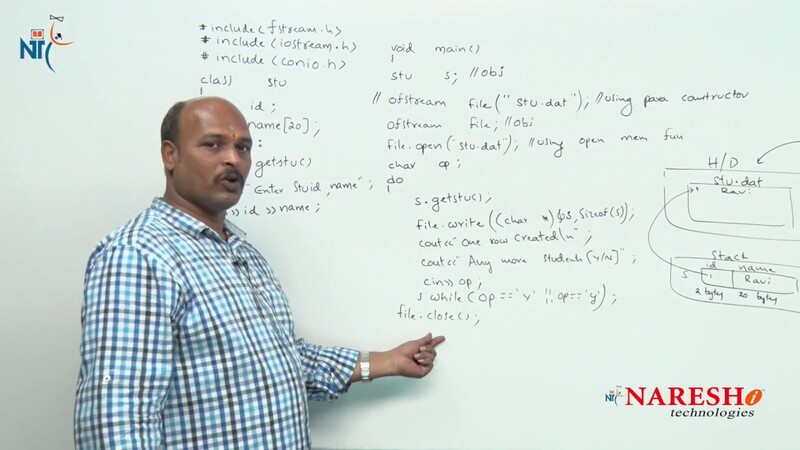 NT
# include(fstream.h>
# include(iostream.h)
# include(conio.h)
class stu
id ;
name[20] ;
:
getstu()
"Enter Stuid, name" ;
>> id >> name ;
void main()
{
stu s; //obj
// ofstream file("stu.dat"); //using para constructor
ofstream file; //obj
file.open("stu.dat"); //using open mem fun
char op;
do
{
s.getstu();
file.write((char *)&s, sizeof(s));
cout<<"One row created\n";
cout<<"Any more students [Y/N]" ;
cin>> op;
} while(op=='Y' || op=='y');
file.close();
H/D
stu.dat
1 Ravi
Stack
id name
S 1 Ravi
2 bytes 20 bytes
NT NARESH i
technologies